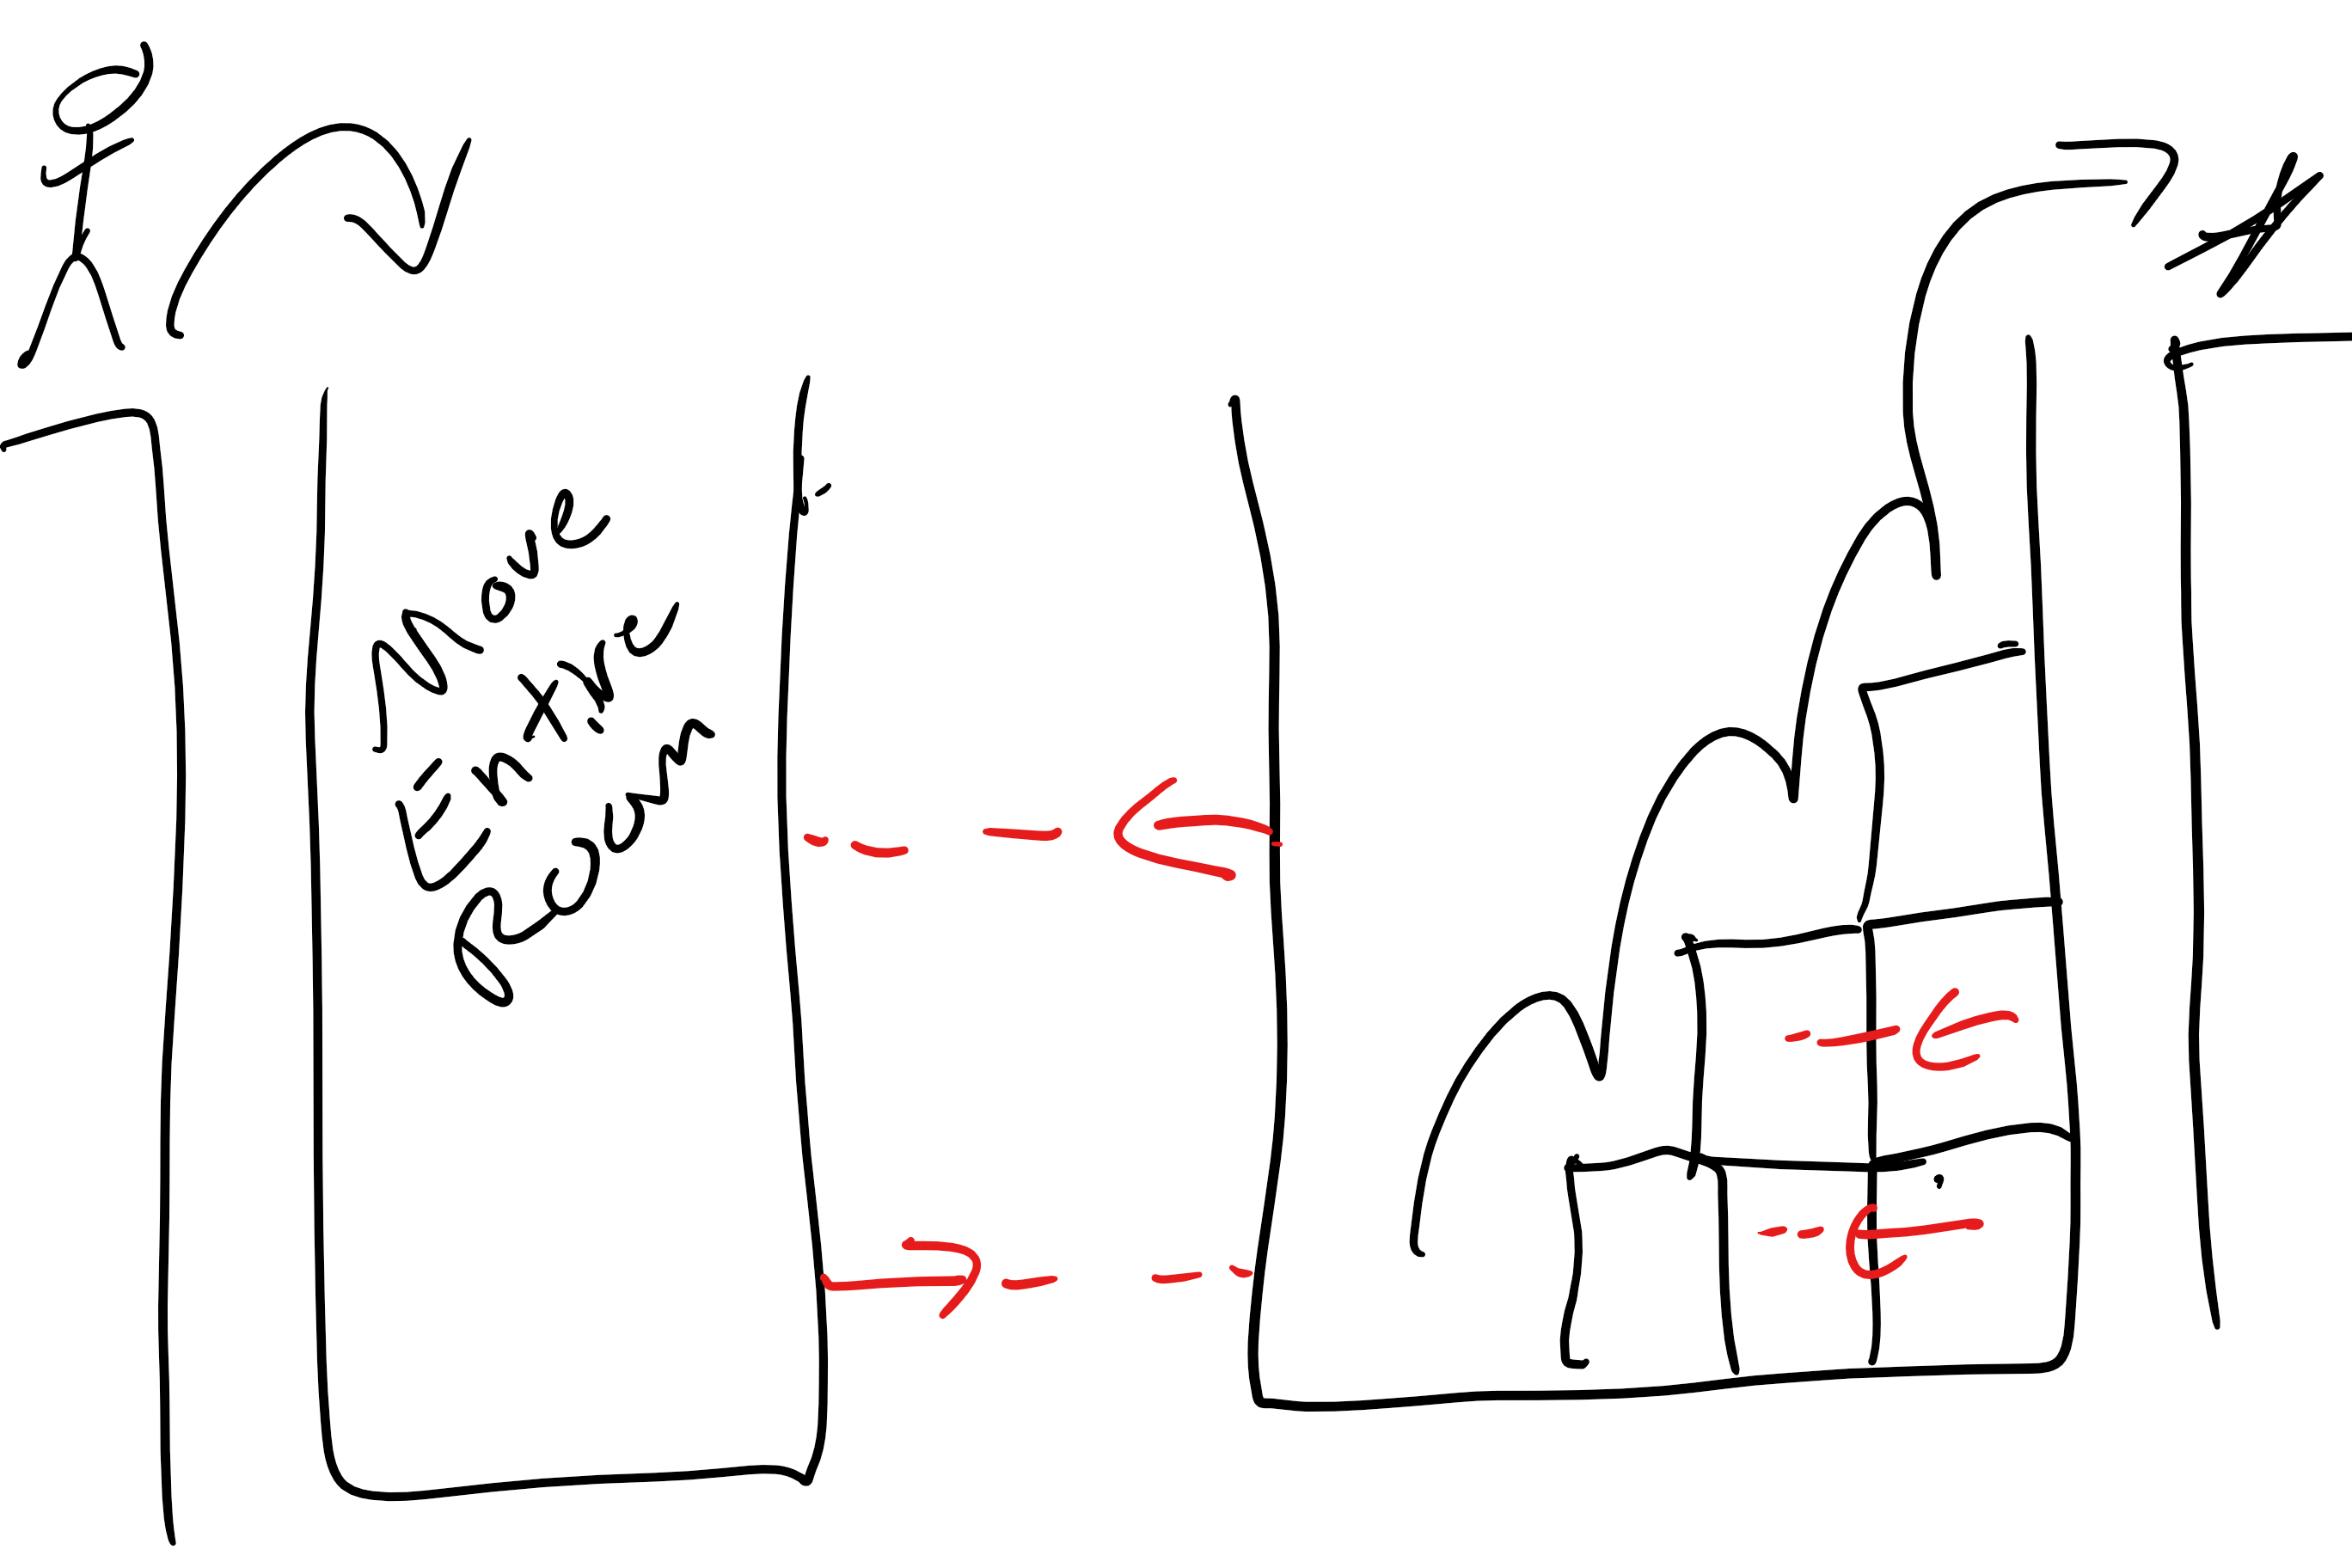 Move
Entire
Room